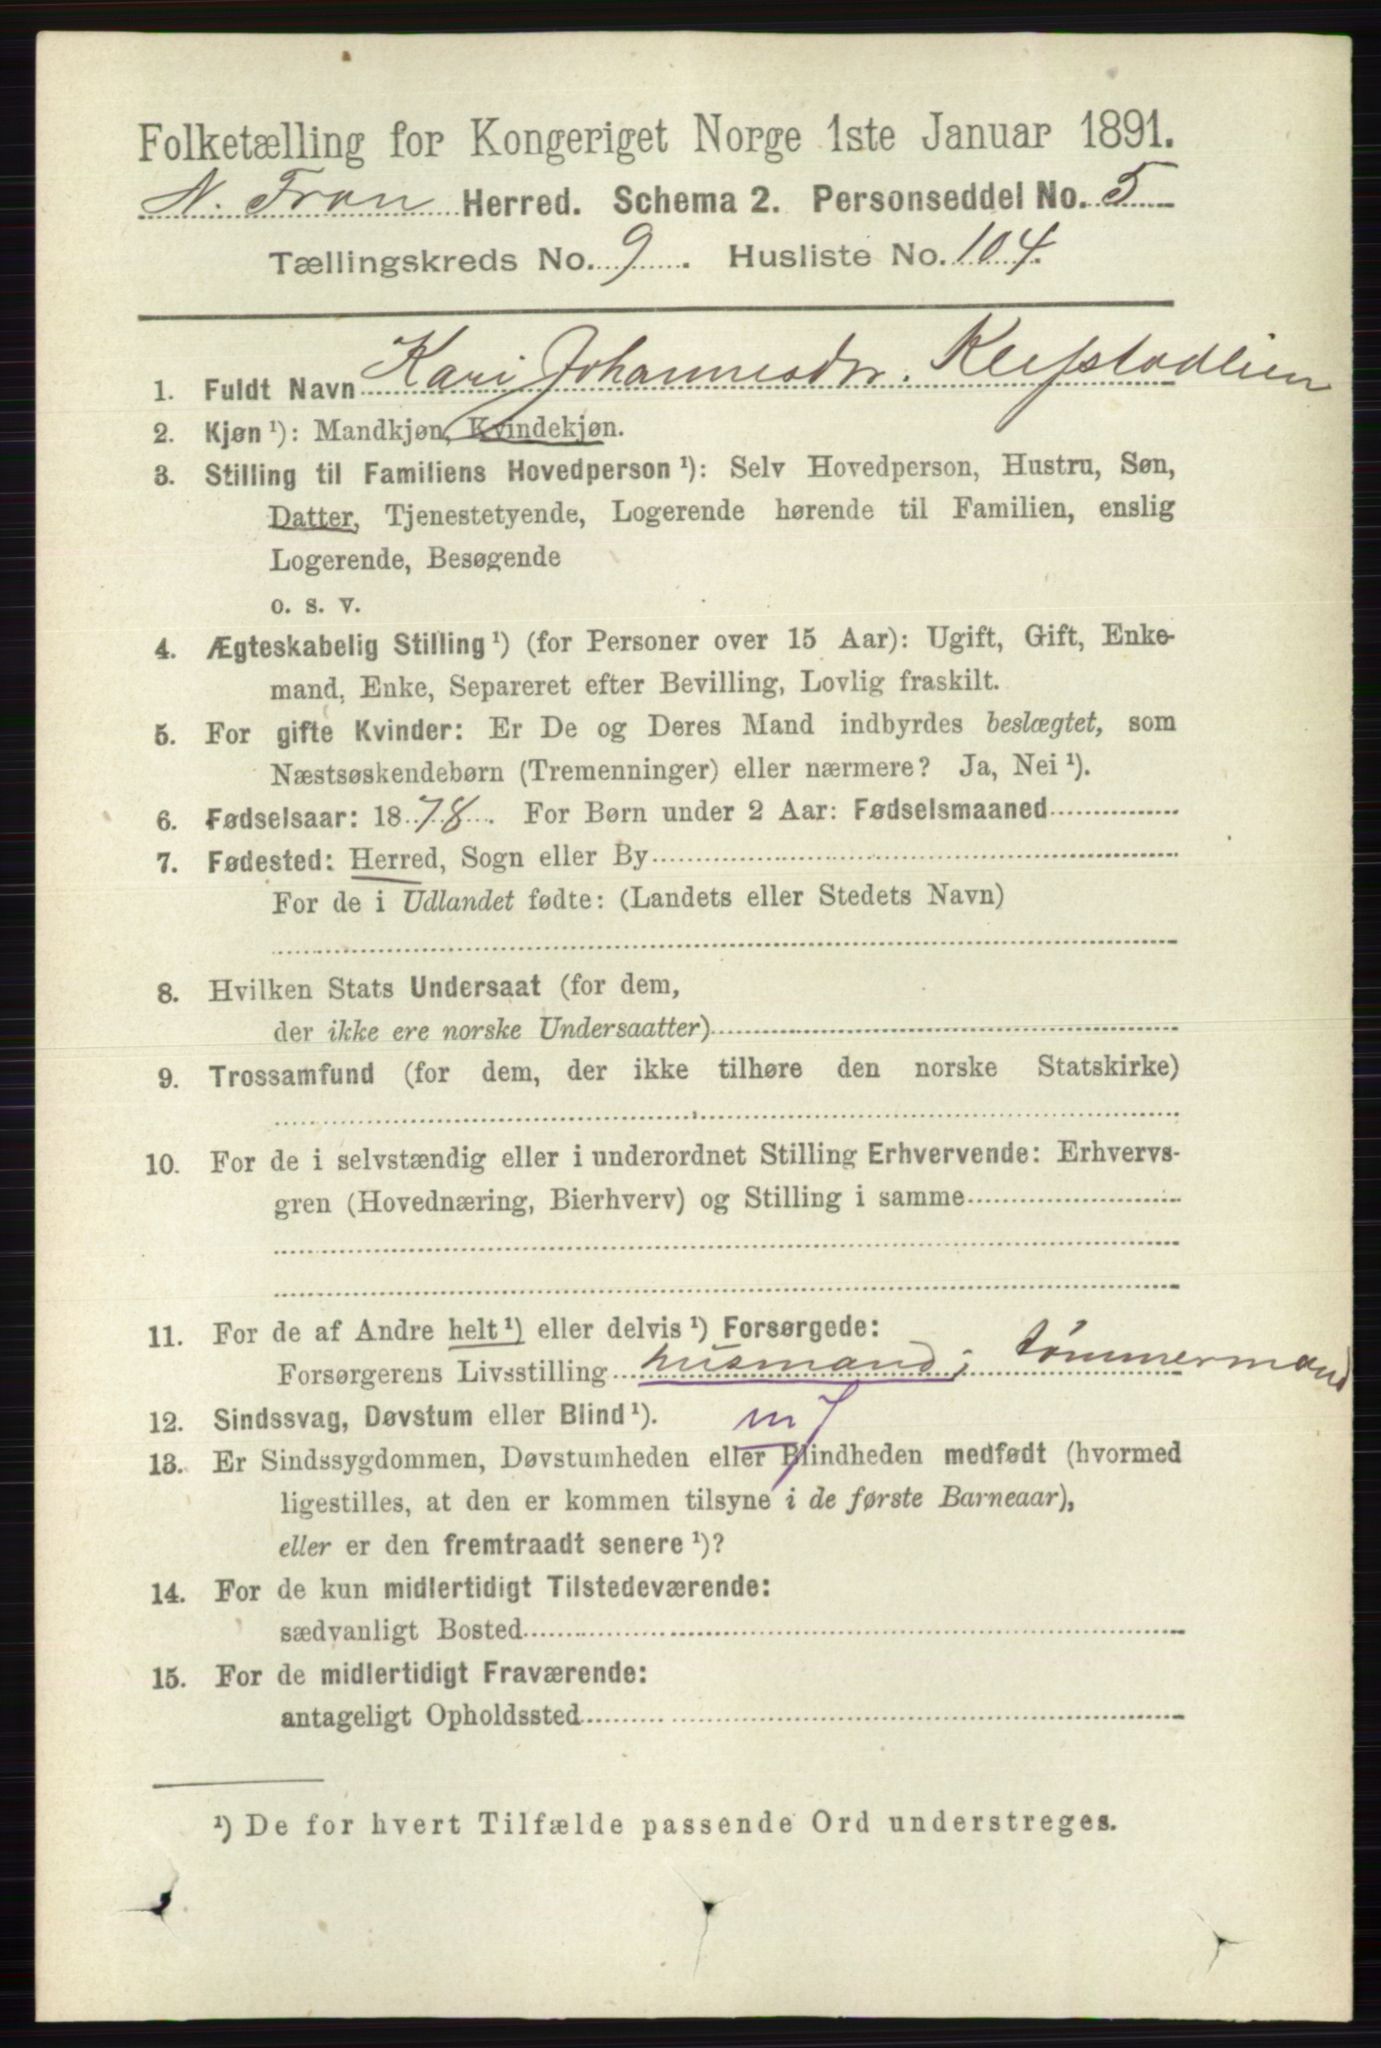 Folketælling for Kongeriget Norge 1ste Januar 1891.
N. Fron Herred. Schema 2. Personseddel No. 5
Tællingskreds No. 9. Husliste No. 104.
1. Fuldt Navn Kari Johannesdtr. Klefstadlien
2. Kjøn ¹): Mandkjøn, Kvindekjøn.
3. Stilling til Familiens Hovedperson ¹): Selv Hovedperson, Hustru, Søn,
Datter, Tjenestetyende, Logerende hørende til Familien, enslig
Logerende, Besøgende
o. s. v.
4. Ægteskabelig Stilling ¹) (for Personer over 15 Aar): Ugift, Gift, Enke-
mand, Enke, Separeret efter Bevilling, Lovlig fraskilt.
5. For gifte Kvinder: Er De og Deres Mand indbyrdes beslægtet, som
Næstsøskendebørn (Tremenninger) eller nærmere? Ja, Nei ¹).
6. Fødselsaar: 1878. For Børn under 2 Aar: Fødselsmaaned
7. Fødested: Herred, Sogn eller By
For de i Udlandet fødte: (Landets eller Stedets Navn)
8. Hvilken Stats Undersaat (for dem,
der ikke ere norske Undersaatter)
9. Trossamfund (for dem, der ikke tilhøre den norske Statskirke)
10. For de i selvstændig eller i underordnet Stilling Erhvervende: Erhvervs-
gren (Hovednæring, Bierhverv) og Stilling i samme
11. For de af Andre helt ¹) eller delvis ¹) Forsørgede:
Forsørgerens Livsstilling husmand; tømmermand
12. Sindssvag, Døvstum eller Blind ¹). m 7
13. Er Sindssygdommen, Døvstumheden eller Blindheden medfødt (hvormed
ligestilles, at den er kommen tilsyne i de første Barneaar),
eller er den fremtraadt senere ¹)?
14. For de kun midlertidigt Tilstedeværende:
sædvanligt Bosted
15. For de midlertidigt Fraværende:
antageligt Opholdssted
¹) De for hvert Tilfælde passende Ord understreges.